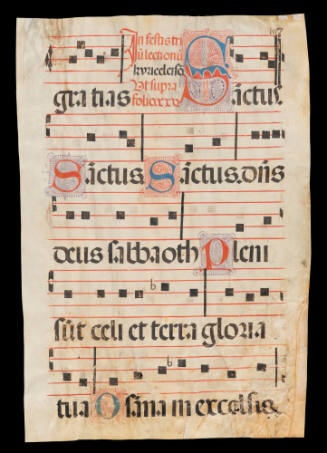 In festis tri
ũ lectionũ
kyrieleiso
Vt supra
folio xxv
gratias Sanctus.
Sanctus. Sanctus. dñs
deus sabbaoth Pleni
sũt celi et terra gloria
tua Osana in excelsis.